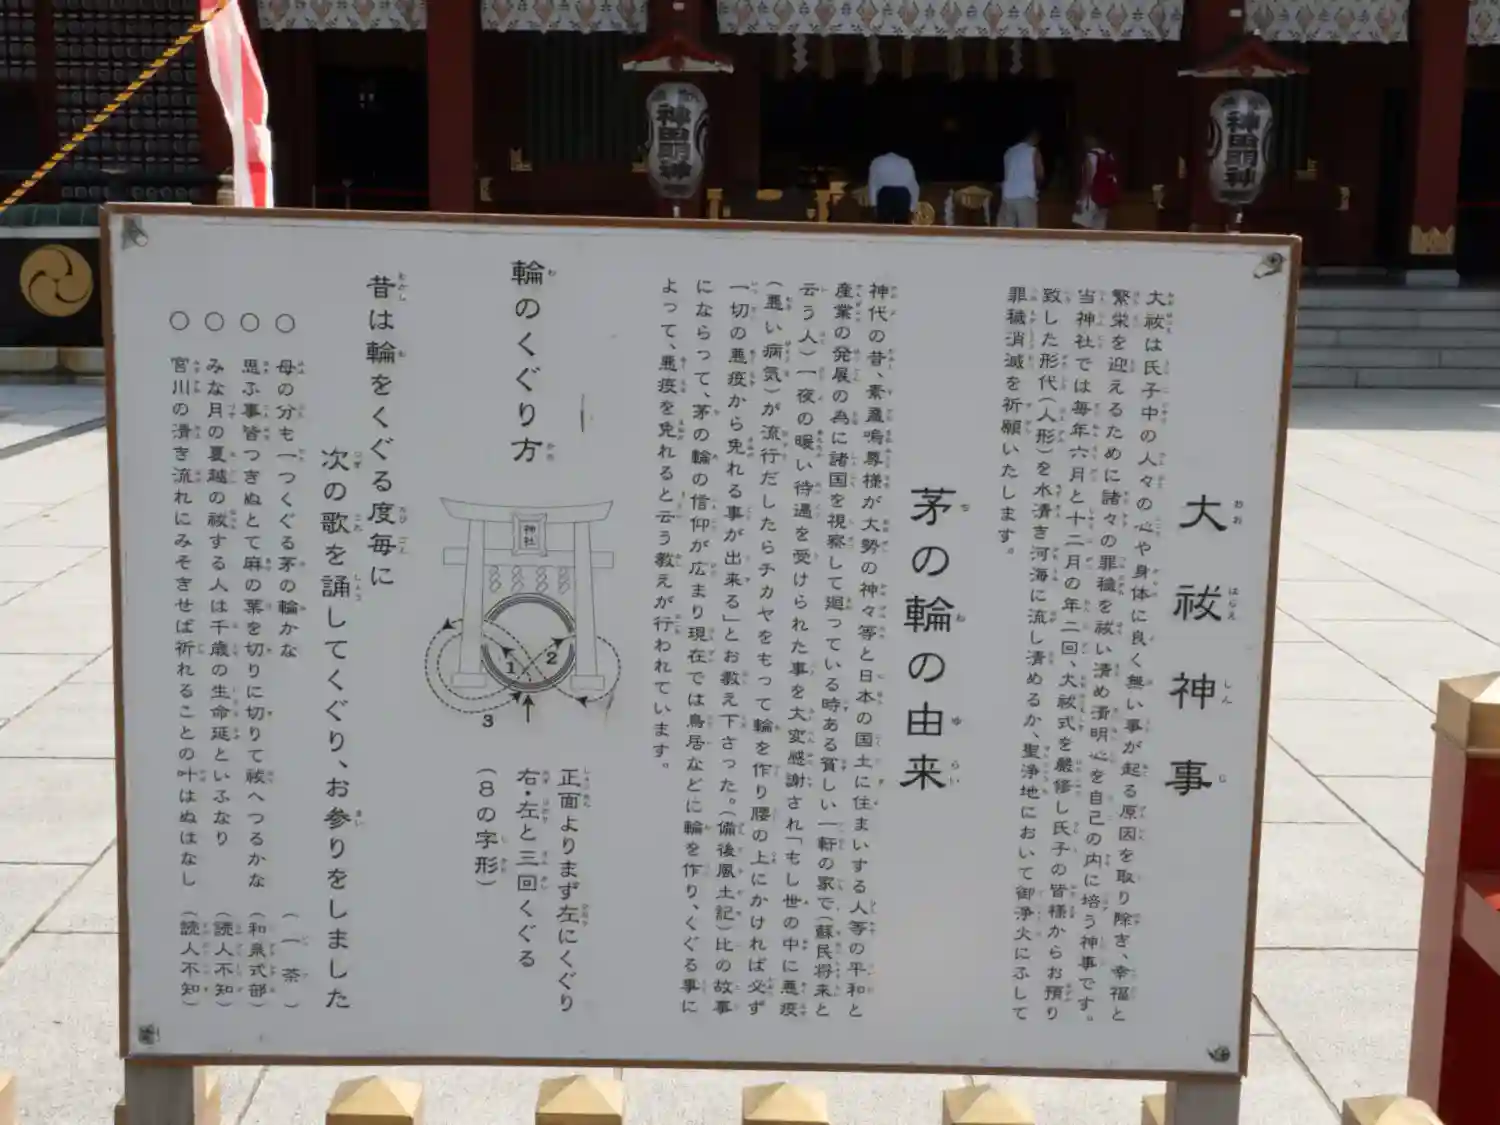 神田明神
神田明神
大祓神事
大祓は氏子中の人々の心や身体に良く無い事が起る原因を取り除き、幸福と
繁栄を迎えるために諸々の罪穢を祓い清め清明心を自己の内に培う神事です。
当神社では毎年六月と十二月の年二回、大祓式を厳修し氏子の皆様からお預り
致した形代(人形)を水清き河海に流し清めるか、聖浄地において御浄火にふして
罪穢消滅を祈願いたします。
茅の輪の由来
神代の昔、素盞嗚尊様が大勢の神々等と日本の国土に住まいする人等の平和と
産業の発展の為に諸国を視察して廻っている時ある貧しい一軒の家で(蘇民将来と
云う人)一夜の暖い待遇を受けられた事を大変感謝され「もし世の中に悪疫
(悪い病気)が流行だしたらチカヤをもって輪を作り腰の上にかければ必ず
一切の悪疫から免れる事が出来る」とお教え下さった。(備後風土記)比の故事
にならって、茅の輪の信仰が広まり現在では鳥居などに輪を作り、くぐる事に
よって、悪疫を免れると云う教えが行われています。
輪のくぐり方
神社
1
2
3
正面よりまず左にくぐり
右・左と三回くぐる
(8の字形)
昔は輪をくぐる度毎に
次の歌を誦してくぐり、お参りをしました
○ 母の分も一つくぐる茅の輪かな (一茶)
○ 思ふ事皆つきぬとて麻の葉を切りに切りて祓へつるかな (和泉式部)
○ みな月の夏越の祓する人は千歳の生命延といふなり (読人不知)
○ 宮川の清き流れにみそきせば祈れることの叶はぬはなし (読人不知)